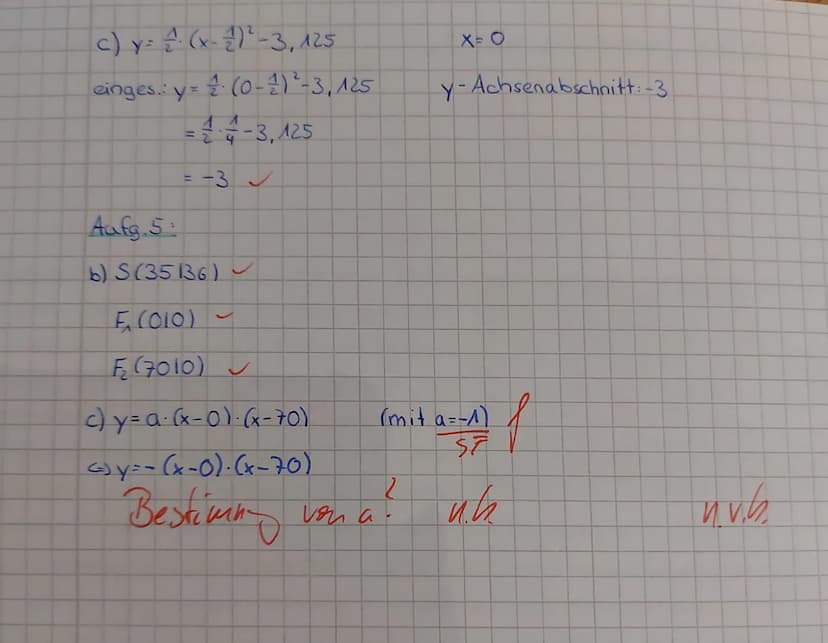 c) y = 1/2 · (x - 1/2)² - 3,125 x = 0
einges.: y = 1/2 · (0 - 1/2)² - 3,125 y-Achsenabschnitt: -3
= 1/2 · 1/4 - 3,125
= -3 ✓
Aufg. 5:
b) S(35|36) ✓
F₁(0|0) ✓
F₂(70|0) ✓
c) y = a · (x - 0) · (x - 70) (mit a = -1) f
SF
c) y = - (x - 0) · (x - 70)
Bestimmung von a? n.b. n.v.b.